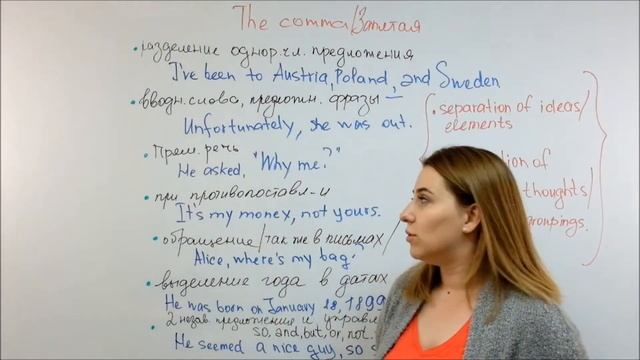 The comma/Запятая
• разделение однор. чл. предложения
I've been to Austria, Poland, and Sweden
• вводн. слова, предложн. фразы
Unfortunately, she was out.
• Прям. речь
He asked, "Why me?"
• при противопоставл-и
It's my money, not yours.
• обращение/так же в письмах
Alice, where's my bag?
• выделение года в датах
He was born on January 18, 1899
• 2 незав. предложения и управл
so, and, but, or, not.
He seemed a nice guy, so
• separation of ideas/
elements
of
thoughts/
groupings.